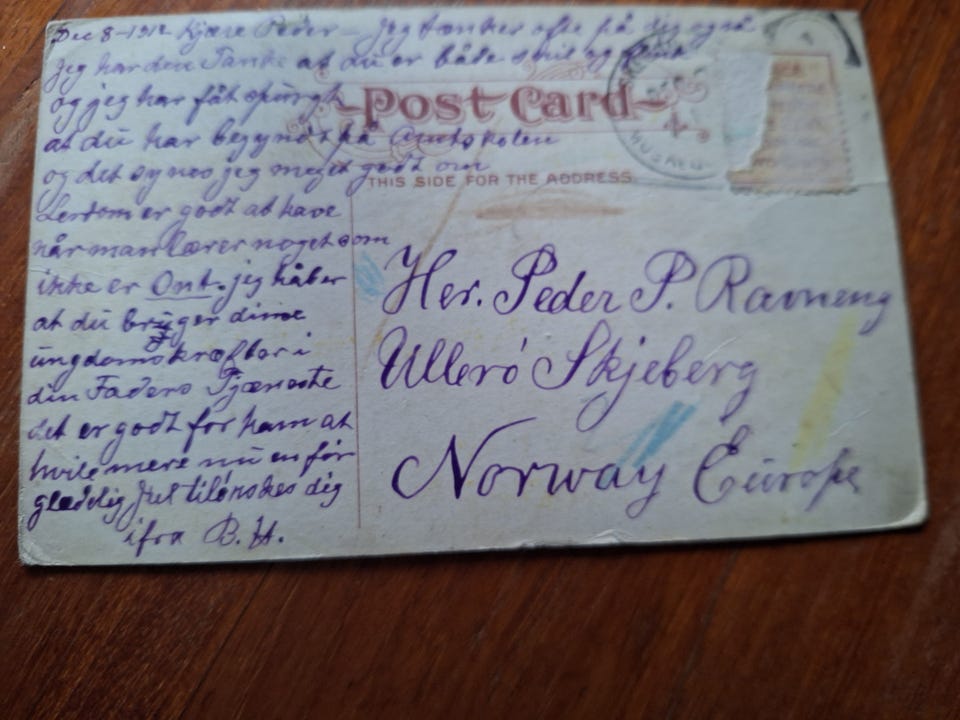 Dec 8-1912 Kjære Peder - jeg tænker ofte på dig også
jeg har den Tanke at du er både snil og flink
og jeg har fåt spurgt
at du har begyndt på Amtskolen
og det synes jeg meget godt om
Lerdom er godt at have
når man lærer noget som
ikke er Ont. jeg håber
at du brüger dine
üngdomskræfter i
din Faders Tjæneste
det er godt for ham at
hvile mere nu en før
glædelig Jul tilønskes dig
ifra B. H.
Post Card
THIS SIDE FOR THE ADDRESS
Her. Peder P. Ravneng
Ullerö Skjeberg
Norway Europe